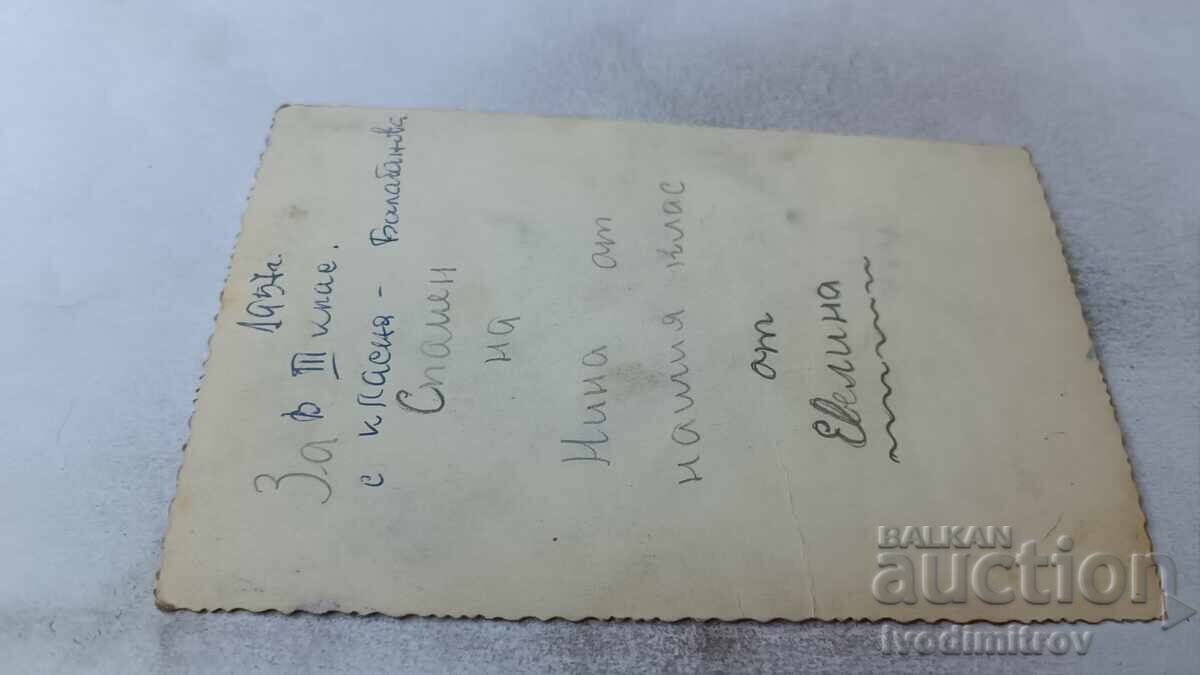 1957г.
За в III клас.
с класна - Балабанова
Спомен
на
Нина от
нашия клас
от
Евелина
BALKAN
auction
ivodimitrov